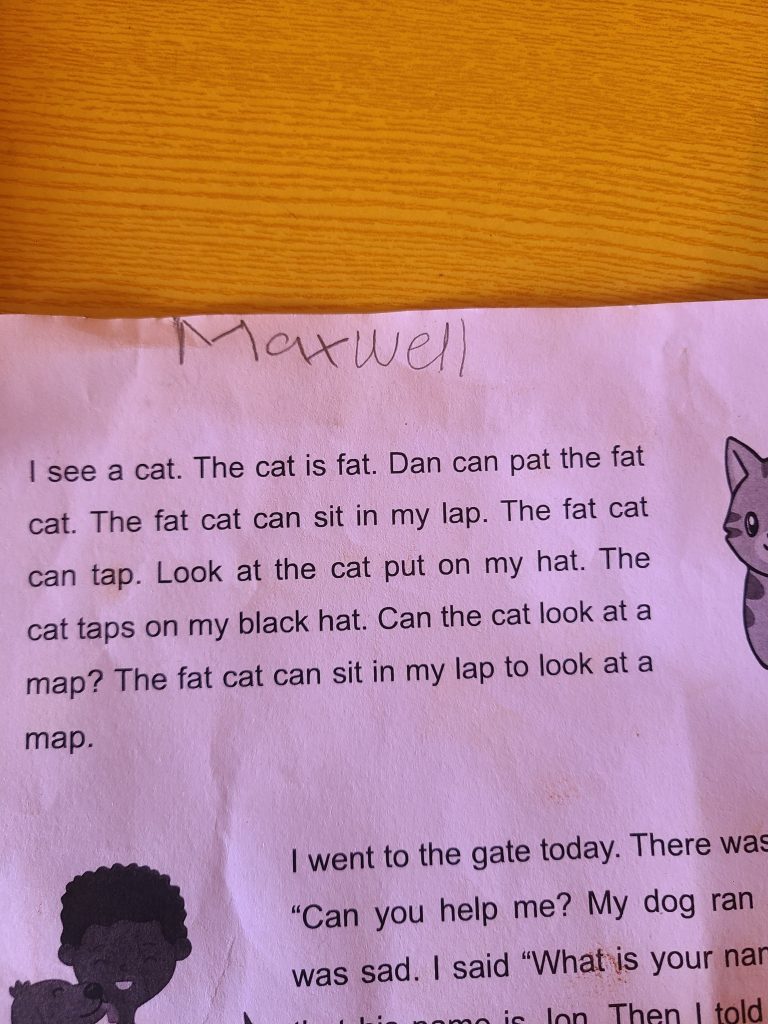 Maxwell
I see a cat. The cat is fat. Dan can pat the fat
cat. The fat cat can sit in my lap. The fat cat
can tap. Look at the cat put on my hat. The
cat taps on my black hat. Can the cat look at a
map? The fat cat can sit in my lap to look at a
map.
I went to the gate today. There was
“Can you help me? My dog ran
was sad. I said “What is your
name is Jon. Then I told